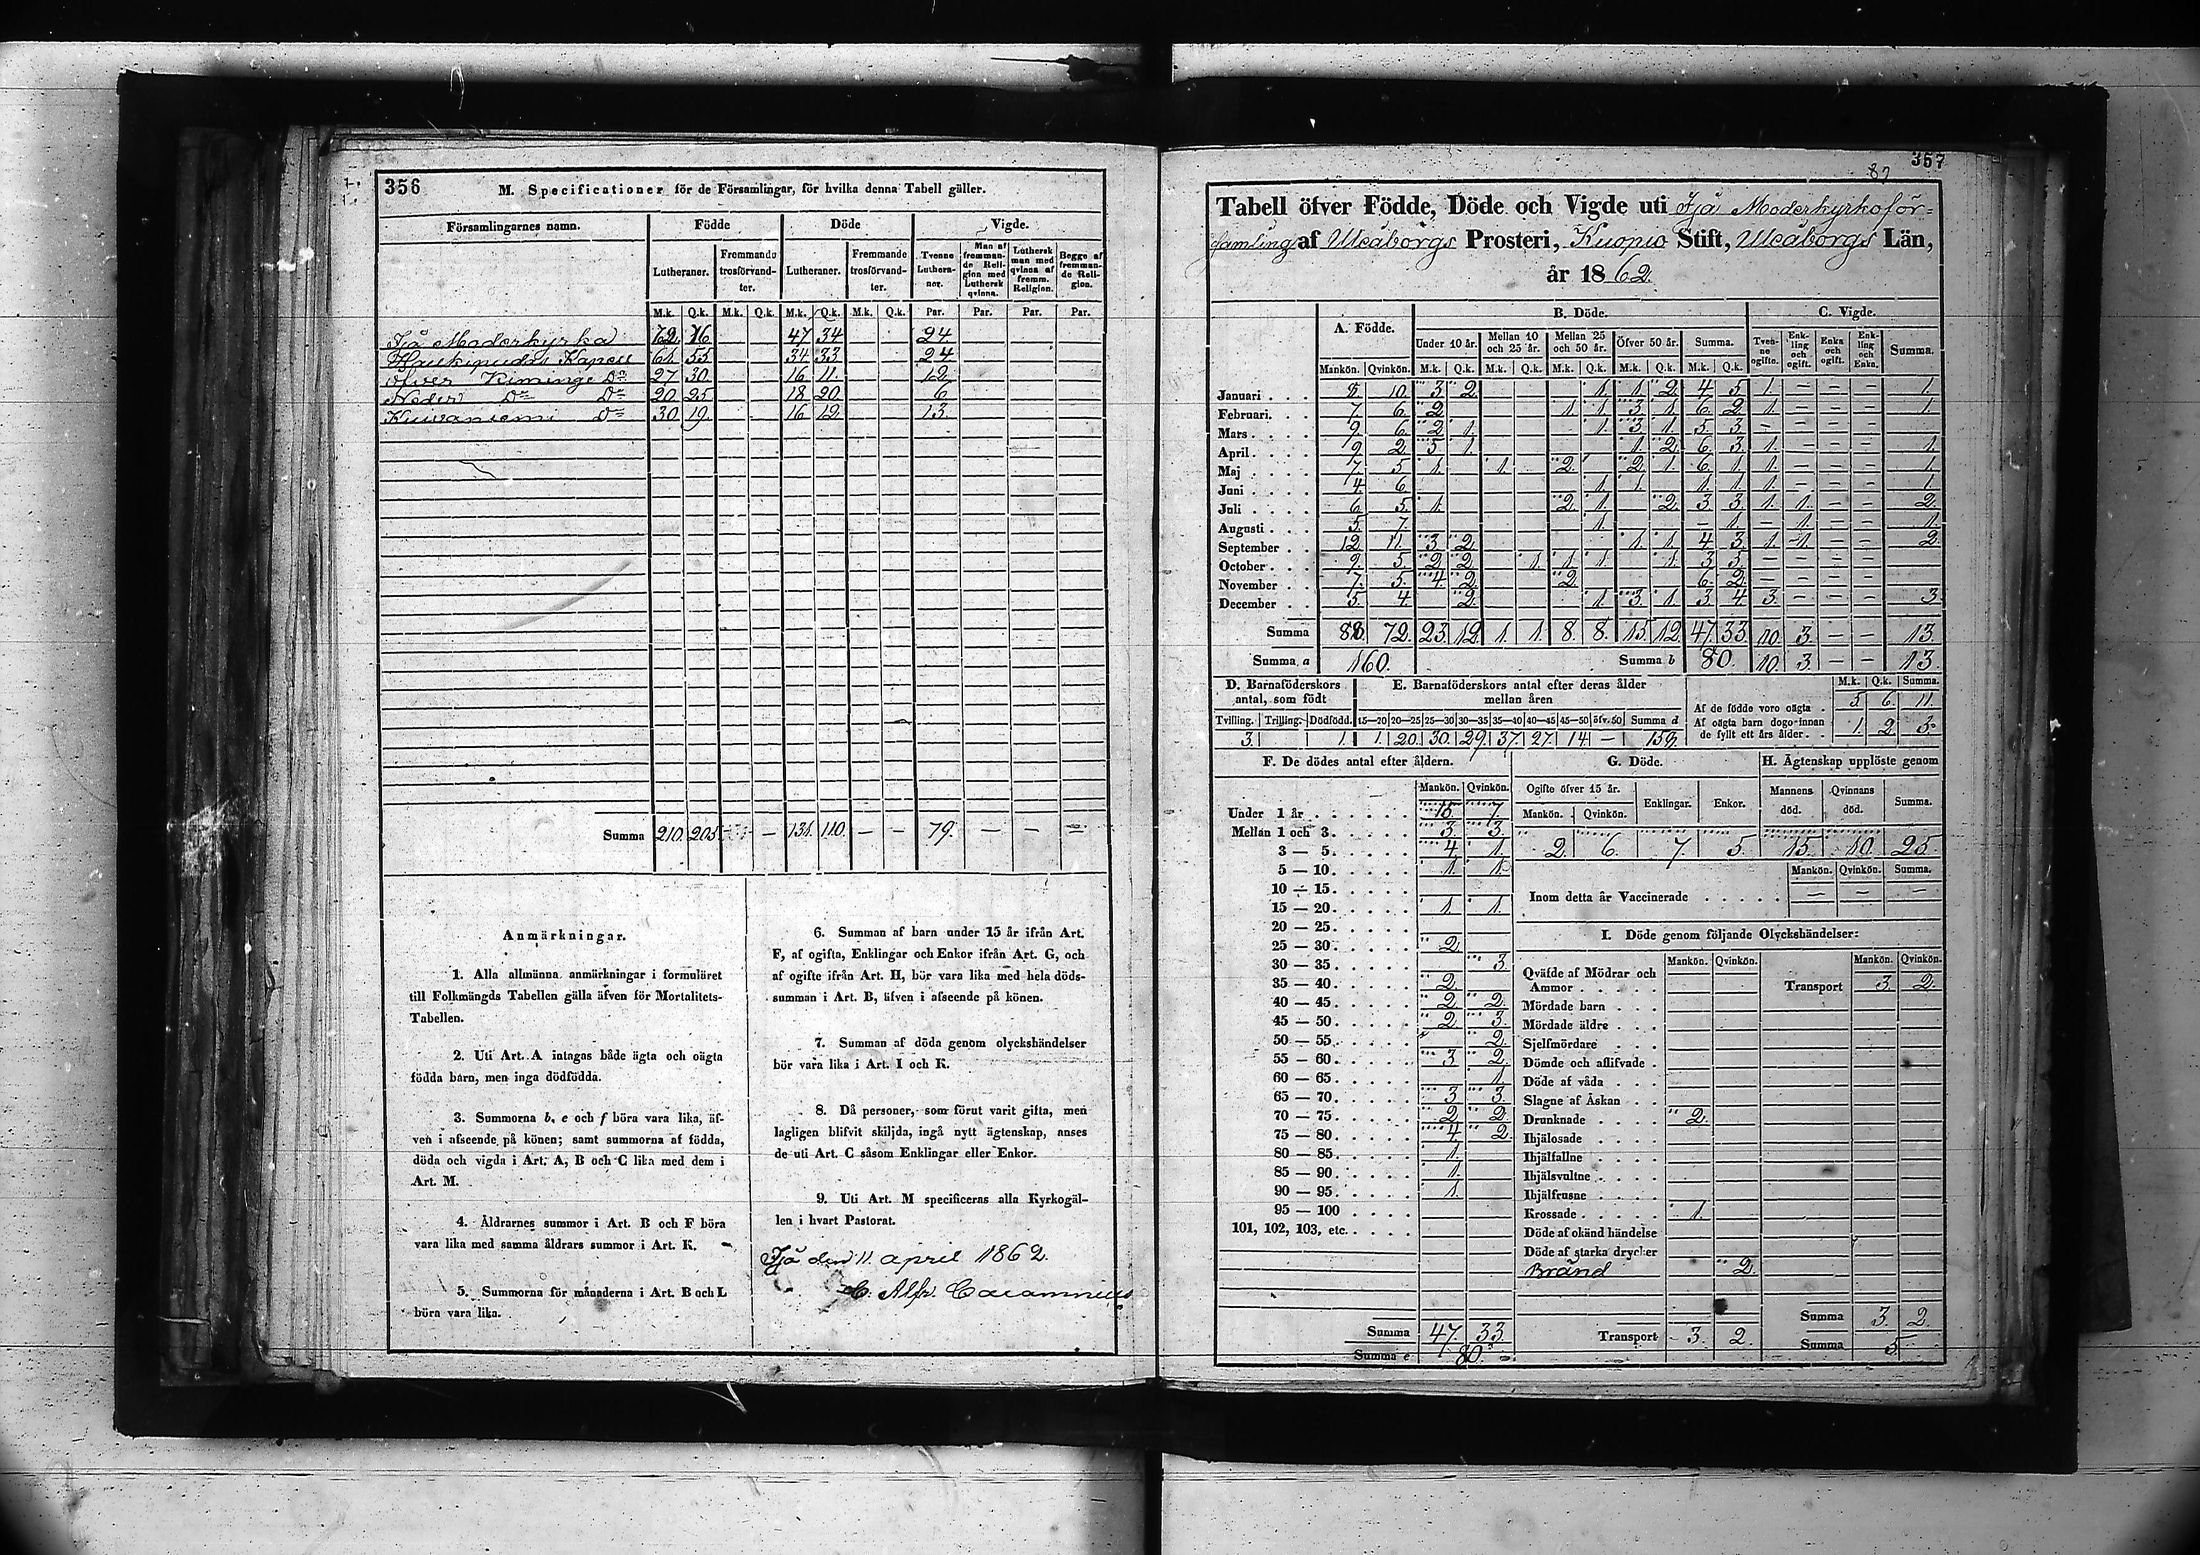 356
M. Specificationer för de Församlingar, för hvilka denna Tabell gäller.
Församlingarnes namn. Födde Döde Vigde.
Lutheraner. Fremmande trosförvandter. Lutheraner. Fremmande trosförvandter. Tvenne Lutheraner. Man af fremmande Religion med Luthersk qvinna. Luthersk man med qvinna af fremm. Religion. Begge af fremmande Religion.
M.k. Q.k. M.k. Q.k. M.k. Q.k. M.k. Q.k. Par. Par. Par. Par.
Ijå Moderkyrka 72 76 47 34 24
Haukipudas Kapell 61 55 34 33 24
öfver Kiminge Do 27 30 16 11 12
Neder Do Do 20 25 18 20 6
Kuivaniemi Do 30 19 16 12 13
Summa 210 205 — 131 110 — — 79 — — —
Anmärkningar.
1. Alla allmänna anmärkningar i formuläret
till Folkmängds Tabellen gälla äfven för Mortalitets-
Tabellen.
2. Uti Art. A intagas både ägta och oägta
födda barn, men inga dödfödda.
3. Summorna b, e och f böra vara lika, äf-
ven i afseende på könen; samt summorna af födda,
döda och vigda i Art. A, B och C lika med dem i
Art. M.
4. Åldrarnes summor i Art. B och F böra
vara lika med samma åldrars summor i Art. K.
5. Summorna för månaderna i Art. B och L
böra vara lika.
6. Summan af barn under 15 år ifrån Art.
F, af ogifta, Enklingar och Enkor ifrån Art. G, och
af ogifte ifrån Art. H, bör vara lika med hela döds-
summan i Art. B, äfven i afseende på könen.
7. Summan af döda genom olyckshändelser
bör vara lika i Art. I och K.
8. Då personer, som förut varit gifta, men
lagligen blifvit skiljda, ingå nytt ägtenskap, anses
de uti Art. C såsom Enklingar eller Enkor.
9. Uti Art. M specificeras alla Kyrkogäl-
len i hvart Pastorat.
Ijå den 11 april 1862.
357
Tabell öfver Födde, Döde och Vigde uti Ijå Moderkyrkoför=
samling af Uleåborgs Prosteri, Kuopio Stift, Uleåborgs Län,
år 1862.
A. Födde. B. Döde. C. Vigde.
Under 10 år. Mellan 10 och 25 år. Mellan 25 och 50 år. Öfver 50 år. Summa. Tvenne ogifte. Enkling och ogift. Enka och ogift. Enkling och Enka. Summa.
Mankön. Qvinkön. M.k. Q.k. M.k. Q.k. M.k. Q.k. M.k. Q.k. M.k. Q.k.
Januari 8 10 3 2 1 1 2 4 5 1 — — — 1
Februari 7 6 2 1 1 3 1 6 2 1 — — — 1
Mars 9 6 2 1 1 3 1 5 3 — — — —
April 9 2 5 1 1 2 6 3 1 — — — 1
Maj 7 5 1 1 2 2 1 6 1 1 — — — 1
Juni 4 6 1 1 1 1 1 — — — 1
Juli 6 5 1 2 1 2 3 3 1 1 — — 2
Augusti 5 7 1 — 1 — 1 — — 1
September 12 11 3 2 1 1 4 3 1 1 — — 2
October 9 5 2 2 1 1 1 1 3 5 — — — —
November 7 5 4 2 2 6 2 — — — —
December 5 4 2 1 3 1 3 4 3 — — — 3
Summa 88 72 23 12 1 1 8 8 15 12 47 33 10 3 — — 13
Summa a 160 Summa b 80 10 3 — — 13
D. Barnaföderskors antal, som födt E. Barnaföderskors antal efter deras ålder mellan åren M.k. Q.k. Summa.
Af de födde voro oägta 5 6 11
Af oägta barn dogo innan de fyllt ett års ålder 1 2 3
Tvilling. Trilling. Dödfödd. 15—20 20—25 25—30 30—35 35—40 40—45 45—50 öfv. 50 Summa d
3 1 1 20 30 29 37 27 14 — 159
F. De dödes antal efter åldern. G. Döde. H. Ägtenskap upplöste genom
Mankön. Qvinkön.
Ogifte öfver 15 år. Enklingar. Enkor. Mannens död. Qvinnans död. Summa.
Mankön. Qvinkön.
2 6 7 5 15 10 25
Under 1 år 15 7
Mellan 1 och 3 3 3
3 — 5 4 1
5 — 10 1 1
10 — 15
15 — 20 1 1
20 — 25
25 — 30 2
30 — 35 3
35 — 40 2
40 — 45 2 2
45 — 50 2 3
50 — 55 2
55 — 60 3 2
60 — 65 1
65 — 70 3 3
70 — 75 2 2
75 — 80 4 2
80 — 85 1
85 — 90 1
90 — 95 1
95 — 100
101, 102, 103, etc.
Summa 47 33
Summa e 80
Mankön. Qvinkön. Summa.
Inom detta år Vaccinerade — — —
I. Döde genom följande Olyckshändelser:
Mankön. Qvinkön. Mankön. Qvinkön.
Qväfde af Mödrar och Ammor Transport 3 2
Mördade barn
Mördade äldre
Sjelfmördare
Dömde och aflifvade
Döde af våda
Slagne af Åskan
Drunknade 2
Ihjälosade
Ihjälfallne
Ihjälsvultne
Ihjälfrusne
Krossade 1
Döde af okänd händelse
Döde af starka drycker
Bränd 2
Summa 3 2
Transport 3 2 Summa 5